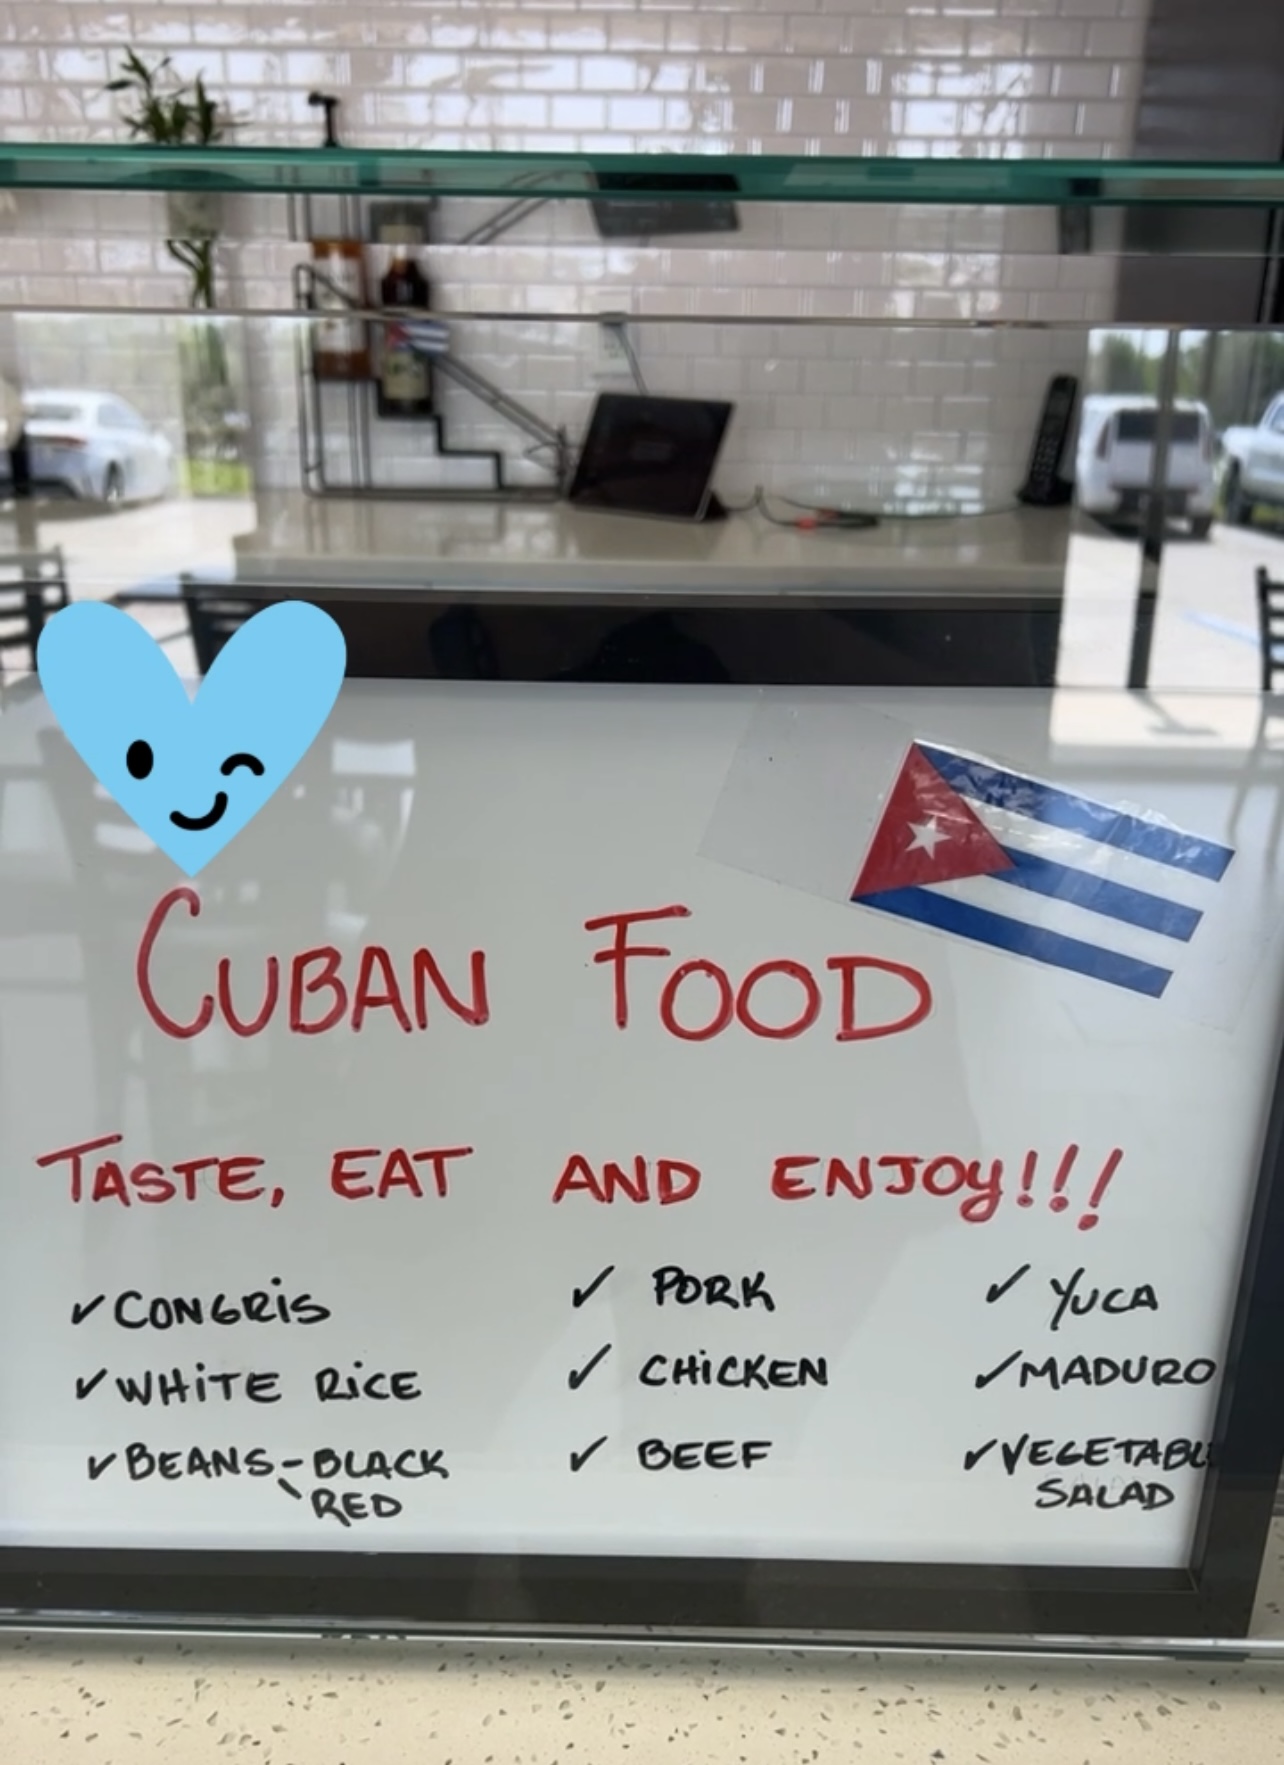 CUBAN FOOD
TASTE, EAT AND ENJOY!!!
✓ CONGRIS ✓ PORK ✓ YUCA
✓ WHITE RICE ✓ CHICKEN ✓ MADURO
✓ BEANS - BLACK ✓ BEEF ✓ VEGETABL
RED SALAD